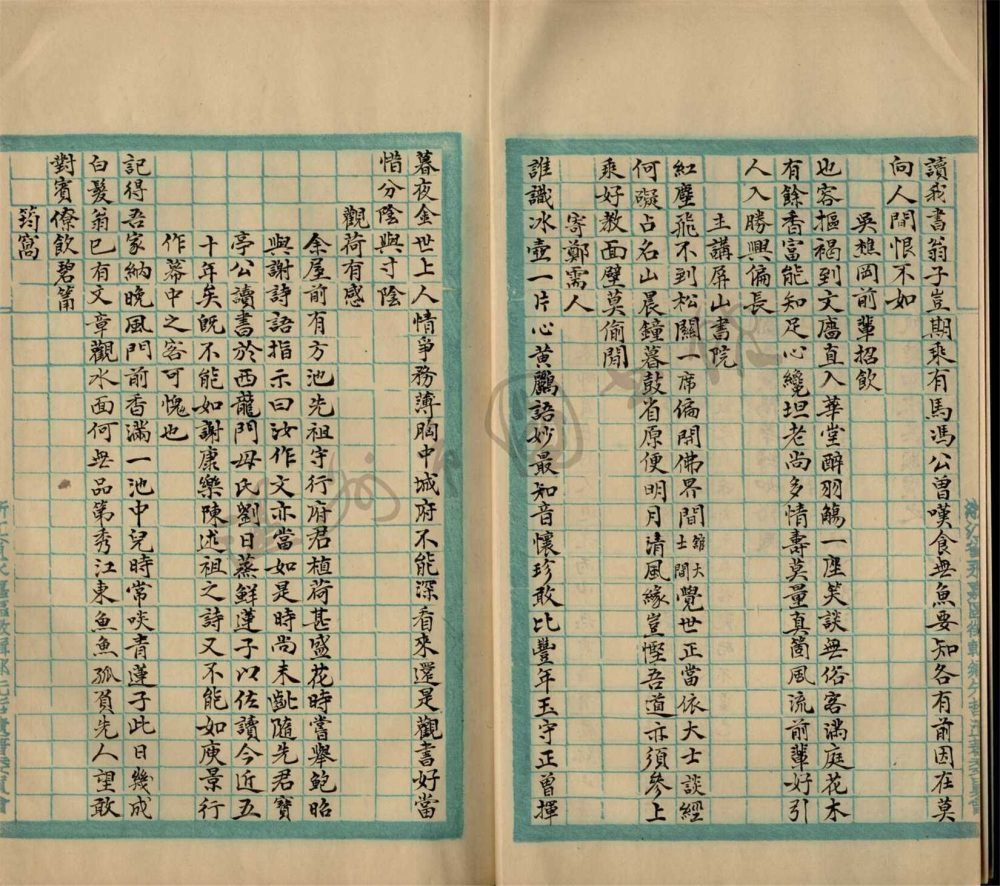 讀我書翁子豈期來有馬馮公曾嘆食無魚要知各有前因在莫
向人間恨不如
吳樵岡前輩招飲
也容摳褐到文廧直入華堂醉羽觴一座笑談無俗客滿庭花木
有餘香富能知足心纔坦老尚多情壽莫量真箇風流前輩好引
人入勝興偏長
主講屏山書院
紅塵飛不到松關一席偏開佛界間館大士間覺世正當依大士談經
何礙占名山晨鐘暮鼓省原便明月清風緣豈慳吾道亦須參上
乘好教面壁莫偷閒
寄鄭需人
誰識冰壺一片心黃鸝語妙最知音懷珍敢比豐年玉守正曾揮
暮夜金世上人情爭務薄胸中城府不能深看來還是觀書好當
惜分陰與寸陰
觀荷有感
余屋前有方池先祖守行府君植荷甚盛花時嘗舉鮑昭
與謝詩語指示曰汝作文亦當如是時尚未齔隨先君寶
亭公讀書於西龍門母氏劉日蒸鮮蓮子以佐讀今近五
十年矣既不能如謝康樂陳述祖之詩又不能如庾景行
作幕中之客可愧也
記得吾家納晚風門前香滿一池中兒時常啖青蓮子此日幾成
白髮翁巳有文章觀水面何無品第秀江東魚魚孤負先人望敢
對賓僚飲碧筩
筠窩